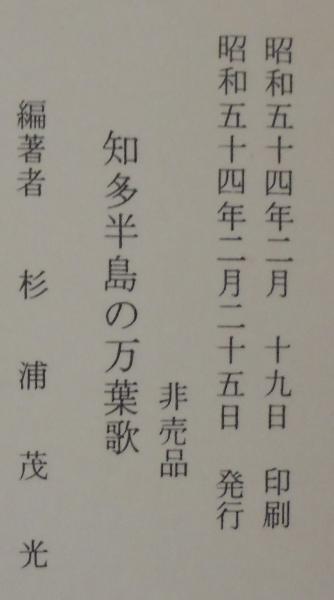 昭和五十四年二月　十九日　印刷
昭和五十四年二月二十五日　発行
非売品
知多半島の万葉歌
編著者　杉浦茂光